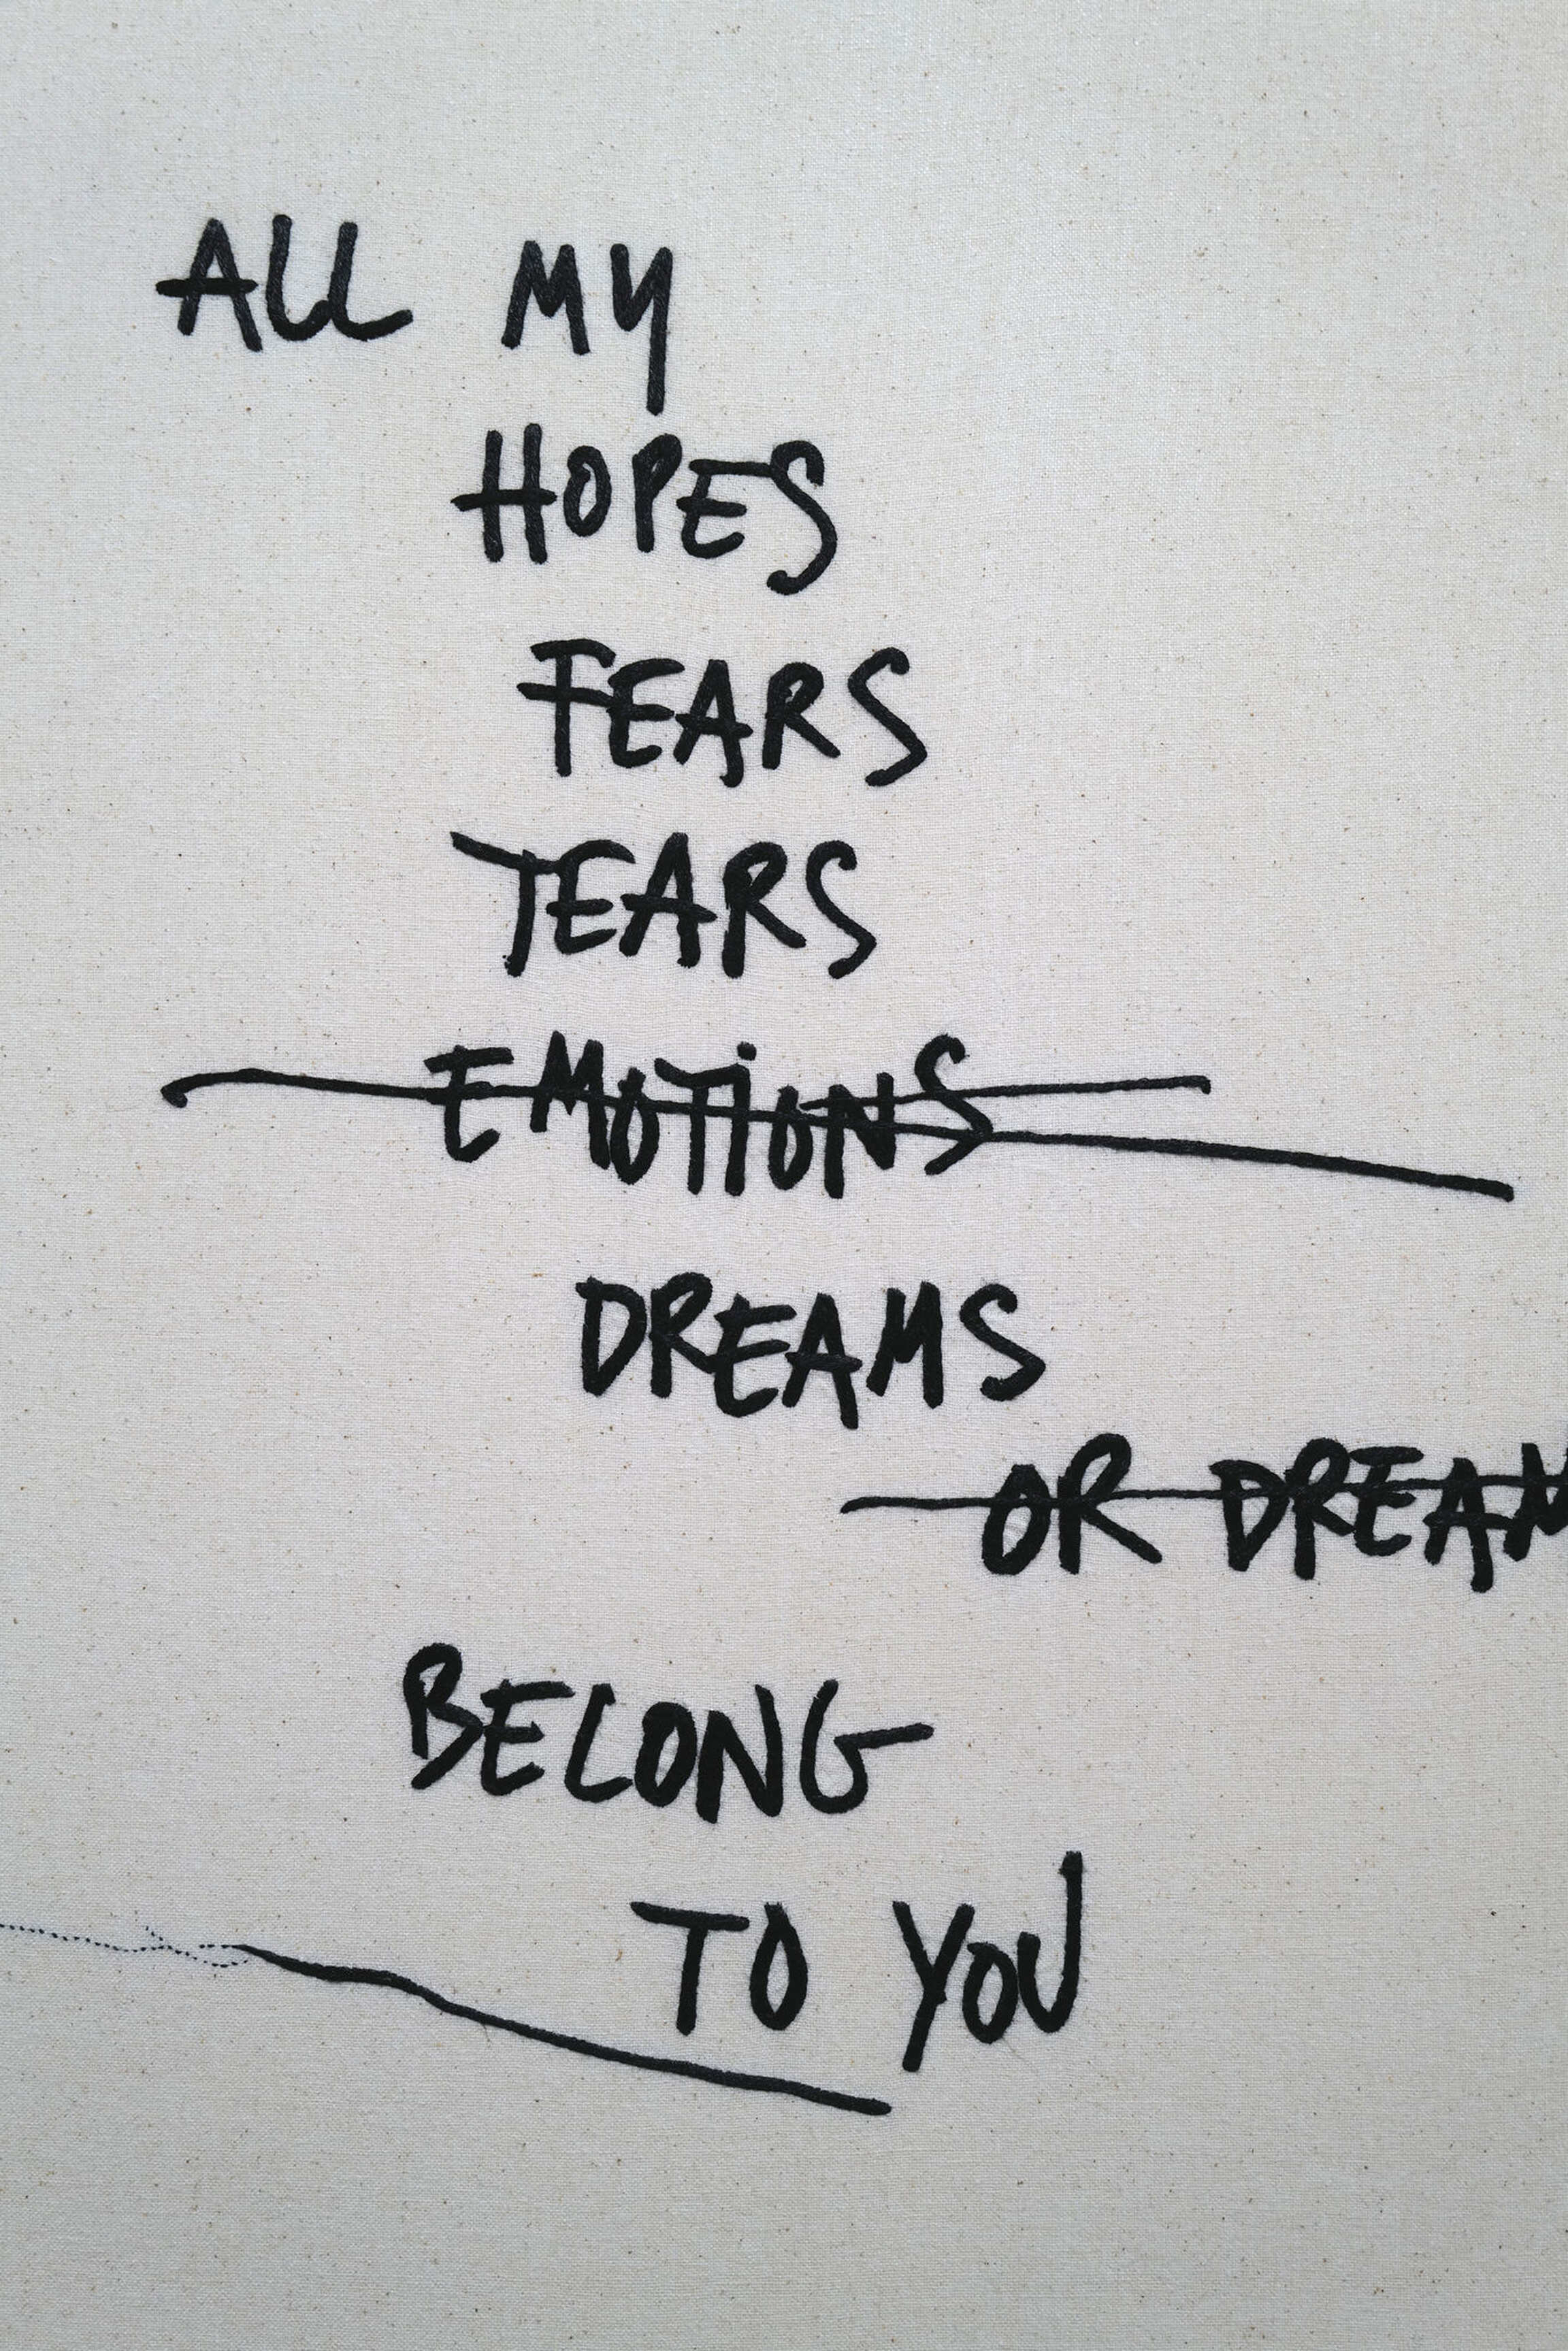 ALL MY
HOPES
FEARS
TEARS
EMOTiONS
DREAMS
OR DREAM
BELONG
TO YOU